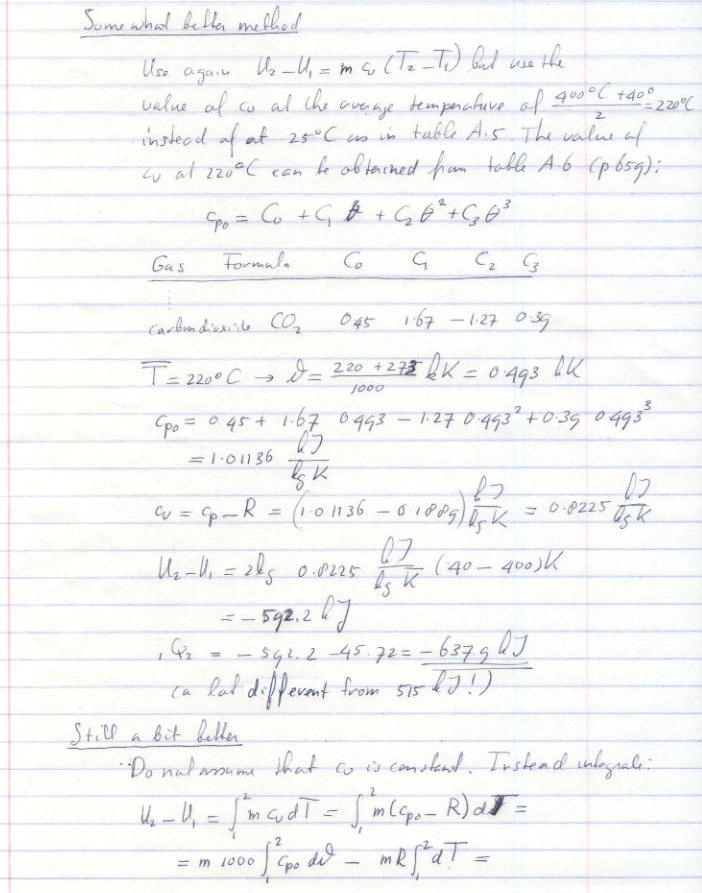 Somewhat better method
Use again U₂ – U₁ = m cv (T₂ – T₁) but use the
value of cv at the average temperature of (400°C + 40°)/2 = 220°C
instead of at 25°C as in table A.5. The value of
cv at 220°C can be obtained from table A.6 (p 659):
cpo = C₀ + C₁ θ + C₂ θ² + C₃ θ³
Gas Formula C₀ C₁ C₂ C₃
⋮
carbondioxide CO₂ 0.45 1.67 –1.27 0.39
T̅ = 220°C → ϑ = (220 + 273)/1000 kK = 0.493 kK
cpo = 0.45 + 1.67 0.493 – 1.27 0.493² + 0.39 0.493³
= 1.01136 kJ/kg K
cv = cp – R = (1.01136 – 0.1889) kJ/kg K = 0.8225 kJ/kg K
U₂ – U₁ = 2kg 0.8225 kJ/kg K (40 – 400)K
= – 592.2 kJ
₁Q₂ = – 592.2 – 45.72 = – 637.9 kJ
(a lot different from 515 kJ!)
Still a bit better
Do not assume that cv is constant. Instead integrate:
U₂ – U₁ = ∫₁² m cv dT = ∫₁² m(cpo – R) dT =
= m 1000 ∫₁² cpo dϑ – mR ∫₁² dT =